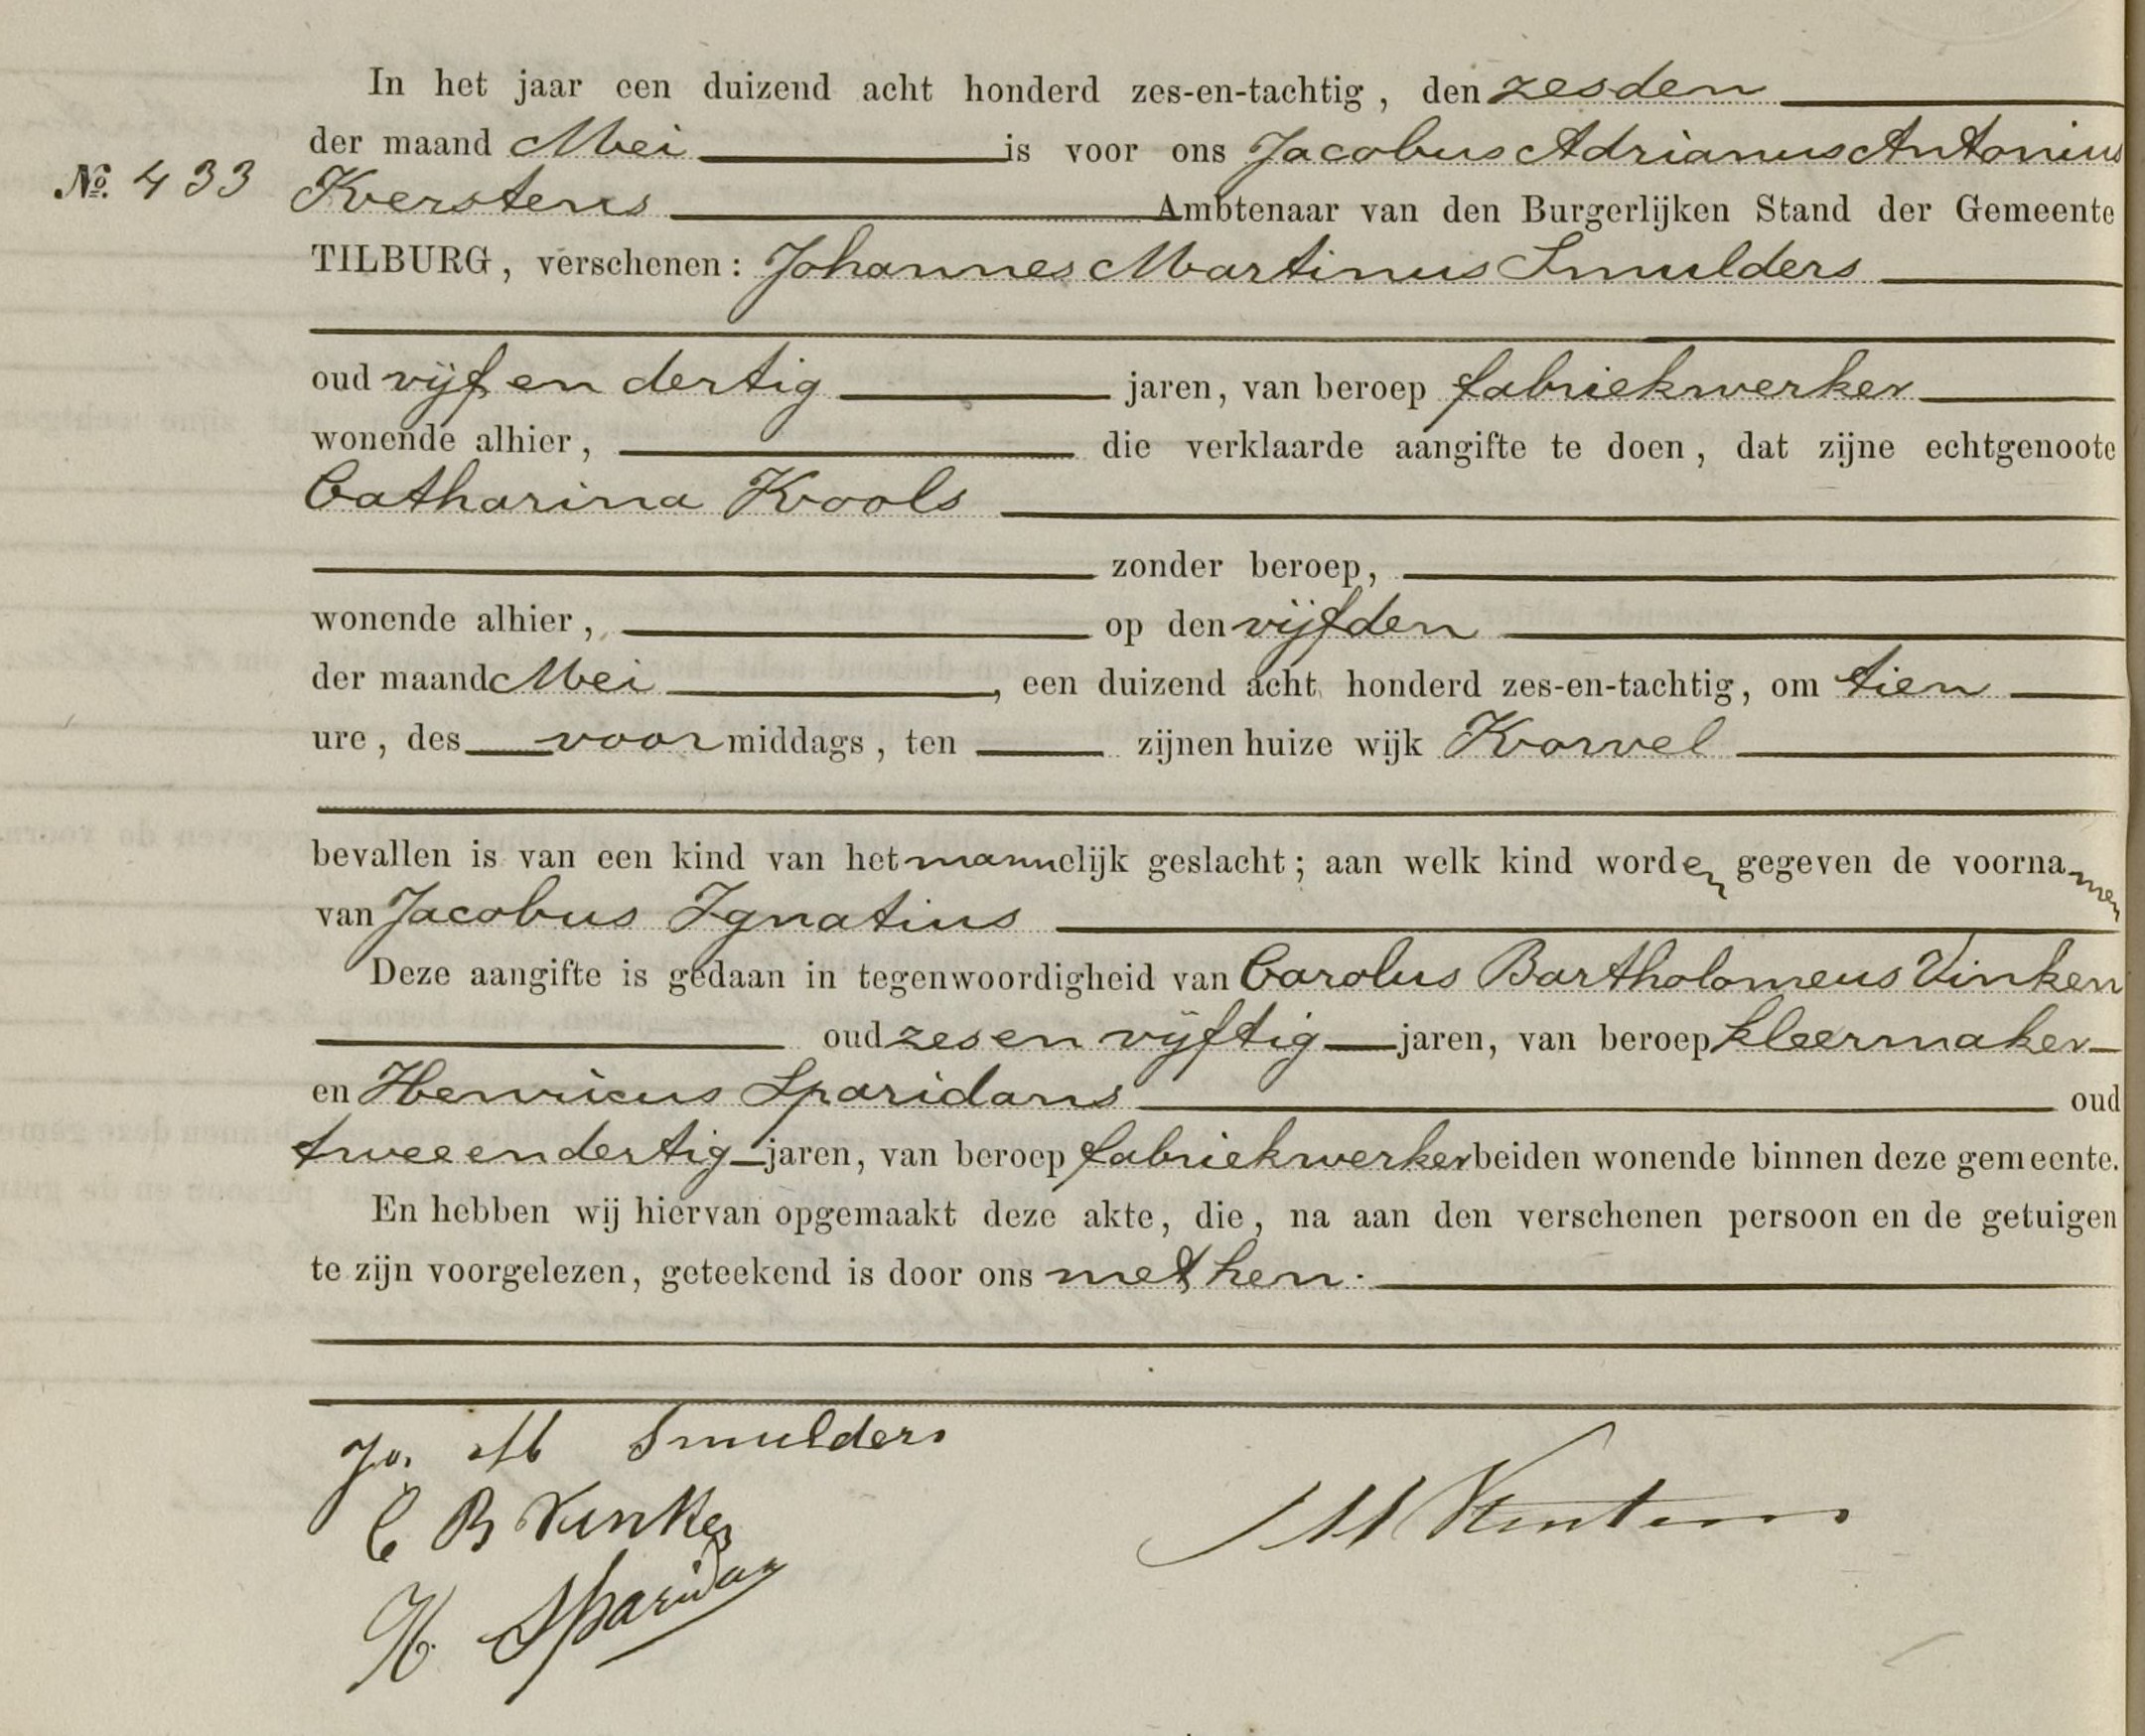 In het jaar een duizend acht honderd zes-en-tachtig, den zesden
der maand Mei is voor ons Jacobus Adrianus Antonius
No. 433 Kerstens Ambtenaar van den Burgerlijken Stand der Gemeente
TILBURG, verschenen: Johannes Martinus Smulders
oud vijf en dertig jaren, van beroep fabriekwerker
wonende alhier, die verklaarde aangifte te doen, dat zijne echtgenoote
Catharina Kools
zonder beroep,
wonende alhier, op den vijfden
der maand Mei, een duizend acht honderd zes-en-tachtig, om tien
ure, des voormiddags, ten zijnen huize wijk Korvel
bevallen is van een kind van het mannelijk geslacht; aan welk kind worden gegeven de voornamen
van Jacobus Ignatius
Deze aangifte is gedaan in tegenwoordigheid van Carolus Bartholomeus Vinken
oud zes en vijftig jaren, van beroep kleermaker
en Henricus Sparidans oud
twee en dertig jaren, van beroep fabriekwerker beiden wonende binnen deze gemeente.
En hebben wij hiervan opgemaakt deze akte, die, na aan den verschenen persoon en de getuigen
te zijn voorgelezen, geteekend is door ons met hen.
Jo. M Smulders
C B Vinken
H Sparidans